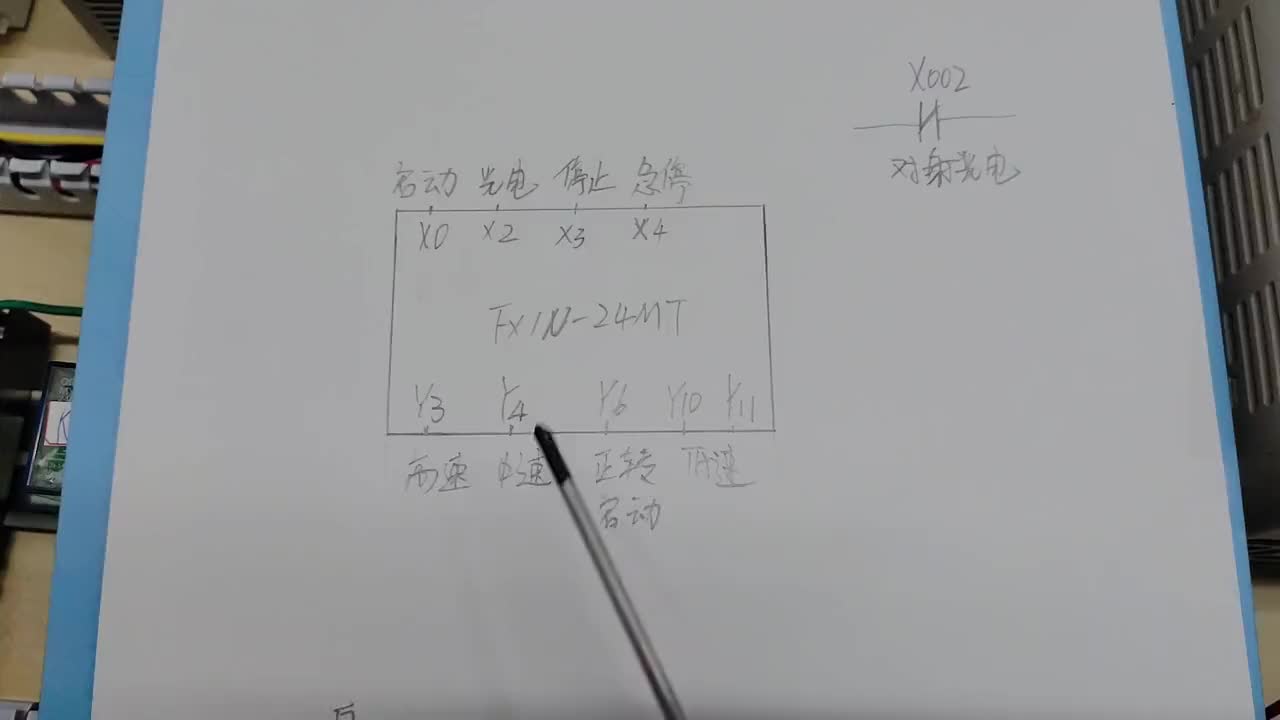 X002
对射光电
启动 光电 停止 急停
X0 X2 X3 X4
FX1N-24MT
Y3 Y4 Y6 Y10 Y11
高速 中速 正转 低速
启动